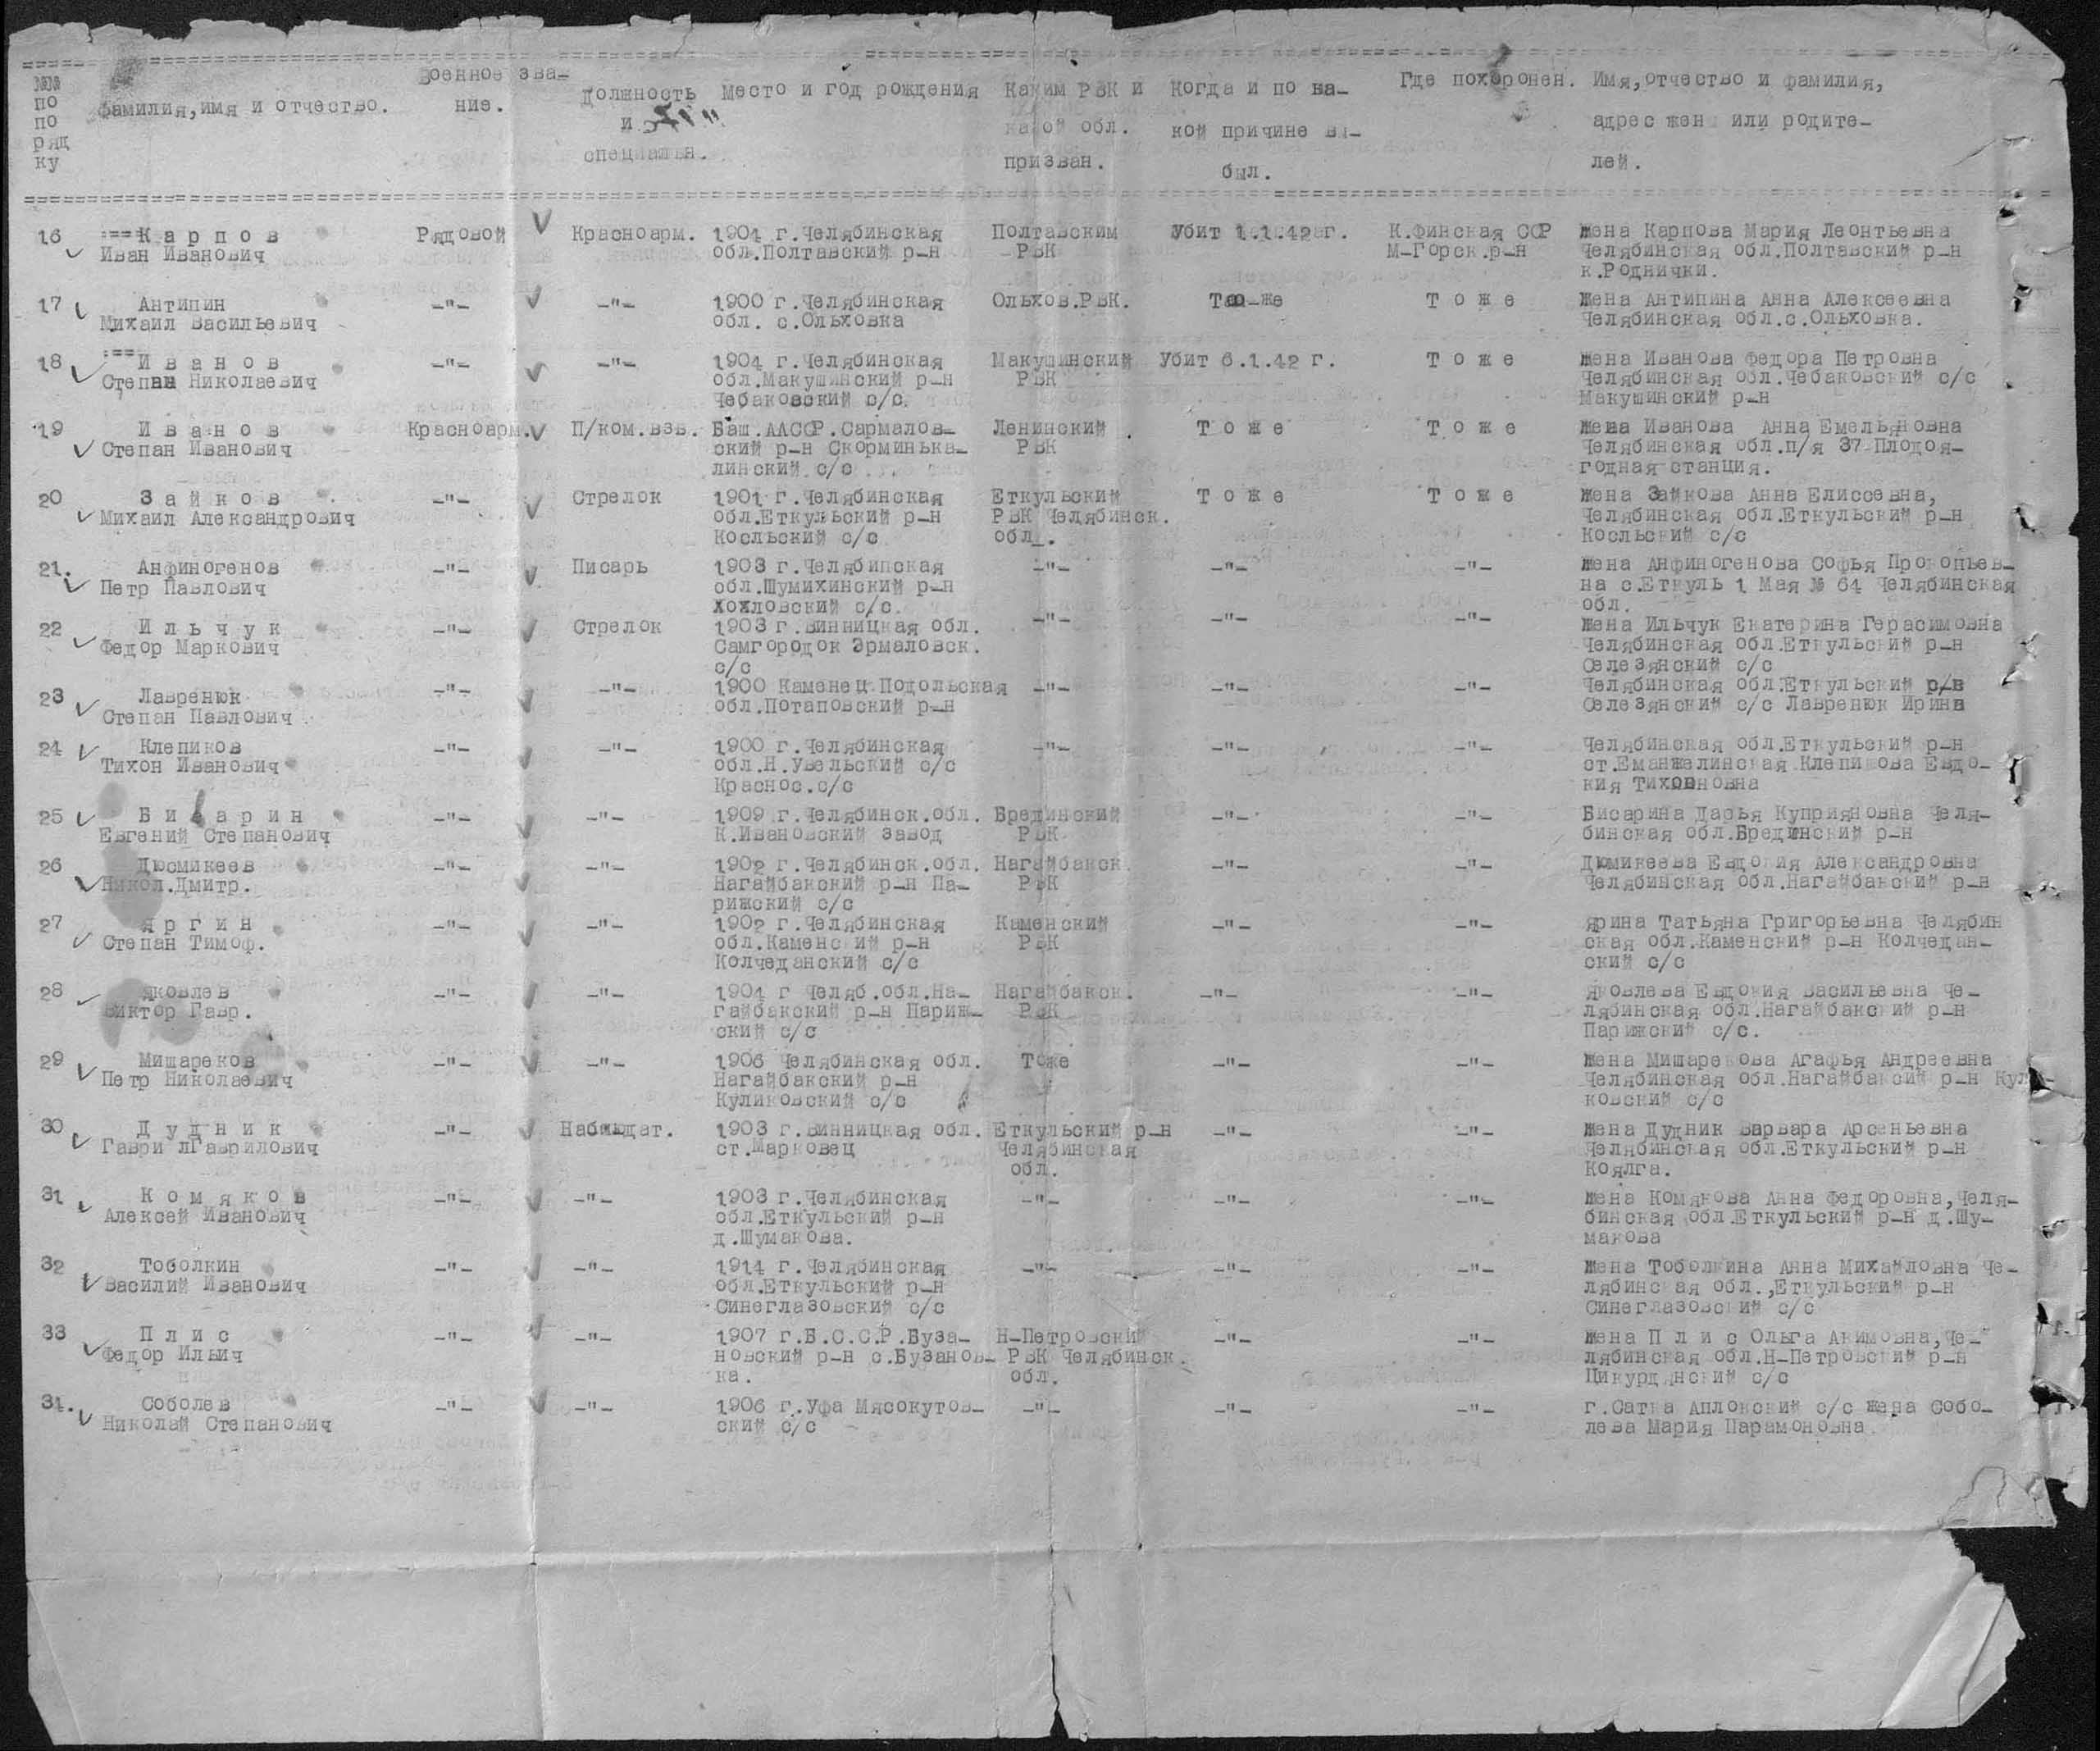 №№ по по ряд ку
Фамилия,имя и отчество.
Военное зва-
ние.
Должность
и
специальн.
Место и год рождения
Каким РВК и
какой обл.
призван.
Когда и по ка-
кой причине вы-
был.
Где похоронен.
Имя,отчество и фамилия,
адрес жен или родите-
лей.
16 Карпов Рядовой Красноарм. 1904 г.Челябинская Полтавским Убит 1.1.42 г. К.Финская ССР Жена Карпова Мария Леонтьевна
Иван Иванович обл.Полтавский р-н РВК М-Горск.р-н Челябинская обл.Полтавский р-н
к.Роднички.
17 Антипин -"- -"- 1900 г.Челябинская Ольхов.РВК. То-же Тоже Жена Антипина Анна Алексеевна
Михаил Васильевич обл. с.Ольховка Челябинская обл.с.Ольховка.
18 Иванов -"- -"- 1904 г.Челябинская Макушинский Убит 6.1.42 г. Тоже Жена Иванова Федора Петровна
Степан Николаевич обл.Макушинский р-н РВК Челябинская обл.Чебаковский с/с
Чебаковский с/с. Макушинский р-н
19 Иванов Красноарм. П/ком.взв. Баш.ААССР.Сармалов- Ленинский Тоже Тоже Жена Иванова Анна Емельяновна
Степан Иванович ский р-н Скорминька- РВК Челябинская обл.п/я 37 Плодоя-
линский с/с годная станция.
20 Зайков -"- Стрелок 1901 г.Челябинская Еткульский Тоже Тоже Жена Зайкова Анна Елиссевна,
Михаил Александрович обл.Еткульский р-н РВК Челябинск. Челябинская обл.Еткульский р-н
Косльский с/с обл. Косльский с/с
21. Анфиногенов -"- Писарь 1903 г.Челябинская -"- -"- -"- Жена Анфиногенова Софья Прокопьев-
Петр Павлович обл.Шумихинский р-н на с.Еткуль 1 Мая № 64 Челябинская
Хохловский с/с. обл.
22 Ильчук -"- Стрелок 1903 г.Винницкая обл. -"- -"- -"- Жена Ильчук Екатерина Герасимовна
Федор Маркович Самгородок Эрмаловск. Челябинская обл.Еткульский р-н
с/с Селезянский с/с
23 Лавренюк -"- -"- 1900 Каменец Подольская -"- -"- -"- Челябинская обл.Еткульский р/в
Степан Павлович обл.Потаповский р-н Селезянский с/с Лавренюк Ирина
24 Клепиков -"- -"- 1900 г.Челябинская -"- -"- -"- Челябинская обл.Еткульский р-н
Тихон Иванович обл.Н.Увельский с/с ст.Еманжелинская Клепикова Евдо-
Краснос.с/с кия Тихоновна
25 Бисарин -"- -"- 1909 г.Челябинск.обл. Брединский -"- -"- Бисарина Дарья Куприяновна Челя-
Евгений Степанович К.Ивановский завод РВК бинская обл.Брединский р-н
26 Дюсмикеев -"- -"- 1902 г.Челябинск.обл. Нагайбакск. -"- -"- Дюмикеева Евдокия Александровна
Никол.Дмитр. Нагайбакский р-н Па- РВК Челябинская обл.Нагайбакский р-н
рижский с/с
27 Яргин -"- -"- 1902 г.Челябинская Каменский -"- -"- Ярина Татьяна Григорьевна Челябин
Степан Тимоф. обл.Каменский р-н РВК ская обл.Каменский р-н Колчедан-
Колчеданский с/с ский с/с
28 Яковлев -"- -"- 1904 г Челяб.обл.На- Нагайбакск. -"- -"- Яковлева Евдокия Васильевна Че-
Виктор Гавр. гайбакский р-н Париж- РВК лябинская обл.Нагайбакский р-н
ский с/с Парижский с/с.
29 Мишареков -"- -"- 1906 Челябинская обл. Тоже -"- -"- Жена Мишарекова Агафья Андреевна
Петр Николаевич Нагайбакский р-н Челябинская обл.Нагайбаксий р-н Кули-
Куликовский с/с ковский с/с
30 Дудник -"- Наблюдат. 1903 г.Винницкая обл. Еткульский р-н -"- -"- Жена Дудник Варвара Арсеньевна
Гаври лГаврилович ст.Марковец Челябинская Челябинская обл.Еткульский р-н
обл. Коялга.
31 Комяков -"- -"- 1903 г.Челябинская -"- -"- -"- Жена Комякова Анна Федоровна,Челя-
Алексей Иванович обл.Еткульский р-н бинская обл.Еткульский р-н д.Шу-
д.Шумакова. макова
32 Тоболкин -"- -"- 1914 г.Челябинская -"- -"- -"- Жена Тоболкина Анна Михайловна Че-
Василий Иванович обл.Еткульский р-н лябинская обл.,Еткульский р-н
Синеглазовский с/с Синеглазовский с/с
33 Плис -"- -"- 1907 г.Б.С.С.Р.Буза- Н-Петровский -"- -"- Жена Плис Ольга Акимовна,Че-
Федор Ильич новский р-н с.Бузанов- РВК Челябинск. лябинская обл.Н-Петровский р-н
ка. обл. Цикурдинский с/с
34. Соболев -"- -"- 1906 г.Уфа Мясокутов- -"- -"- -"- г.Сатка Аплокский с/с жена Собо-
Николай Степанович ский с/с лева Мария Парамоновна